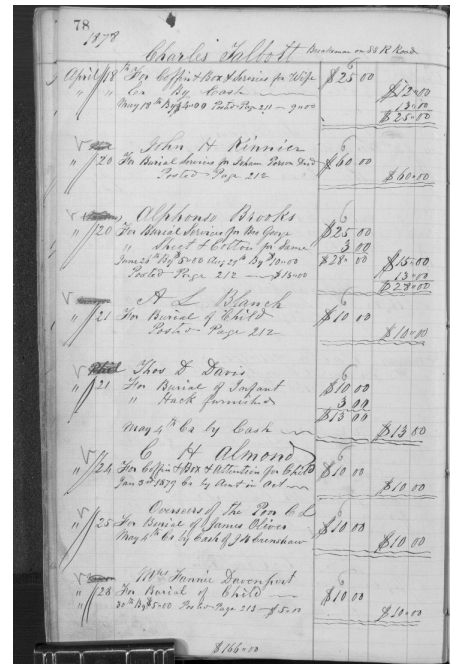 78
1878
Charles Talbott Brakeman on SS R Road
April 18th For Coffin & Box & Services for Wife $25 00
" " Cr By Cash $12=00
May 18th By $4=00 Posted Page 211 — 9=00 13=00
$25=00
John H Kinnier
" 20 For Burial Services for $60 00
Posted Page 212 $60=00
Alphonso Brooks
" 20 For Burial Services for George $25 00
" Sheet & Cotton for Same 3 00
June 26th By $5=00 Aug 29th By $10=00 $28=00 $15=00
Posted Page 212 — $13=00 13=00
$28=00
A L Blanck
" 21 For Burial of Child $10 00
Posted Page 212 $10=00
Thos D Davis
" 21 For Burial of Infant $10 00
" Hack furnished 3 00
$13 00
May 4th Cr by Cash $13 00
C H Almond
" 24 For Coffin & Box & Attention for Child $10 00
Jan 3rd 1879 Cr by Amt in Act $10 00
Overseers of the Poor C L
" 25 For Burial of James Oliver $10 00
May 4th Cr by Cash of J W Crenshaw $10 00
Mrs Fannie Davenport
" 28 For Burial of Child $10 00
30th By $5=00 Posted Page 213 — $5=00 $10=00
$166=00